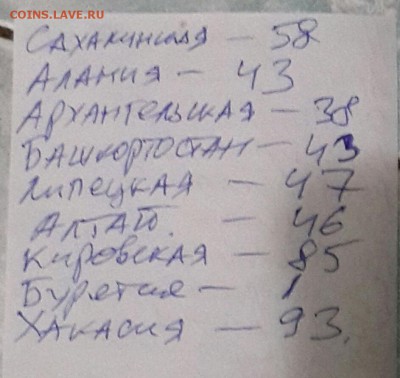 COINS.LAVE.RU
САХАЛИНСКАЯ – 58
АЛАНИЯ – 43
АРХАНГЕЛЬСКАЯ – 38
БАШКОРТОСТАН – 43
ЛИПЕЦКАЯ – 47
АЛТАЙ. – 46
КИРОВСКАЯ – 85
БУРЕТИЯ – 1
ХАКАСИЯ – 93.